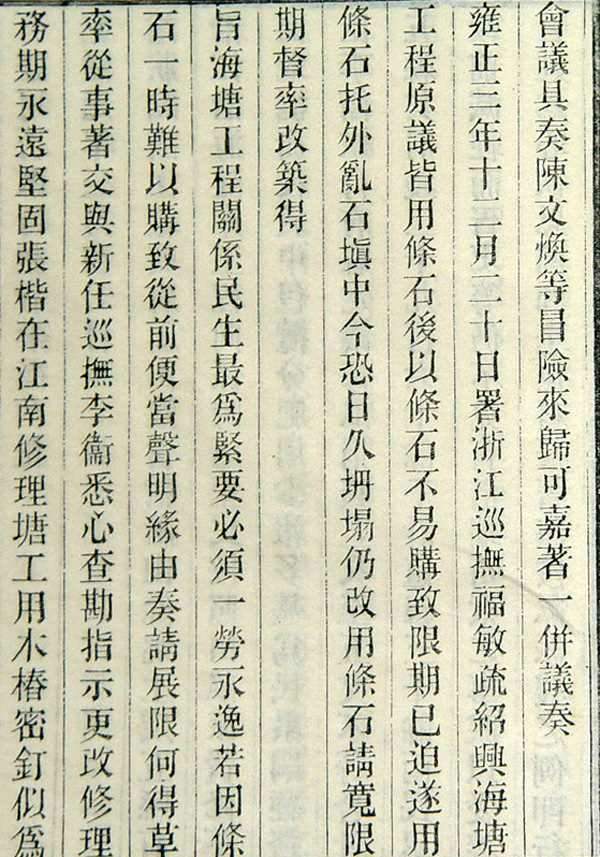 會議具奏陳文煥等冒險來歸可嘉著一併議奏
雍正三年十二月二十日署浙江巡撫福敏疏紹興海塘
工程原議皆用條石後以條石不易購致限期已迫遂用
條石托外亂石塡中今恐日久坍塌仍改用條石請寬限
期督率改築得
旨海塘工程關係民生最爲緊要必須一勞永逸若因條
石一時難以購致從前便當聲明緣由奏請展限何得草
率從事著交與新任巡撫李衞悉心查勘指示更改修理
務期永遠堅固張楷在江南修理塘工用木樁密釘似爲